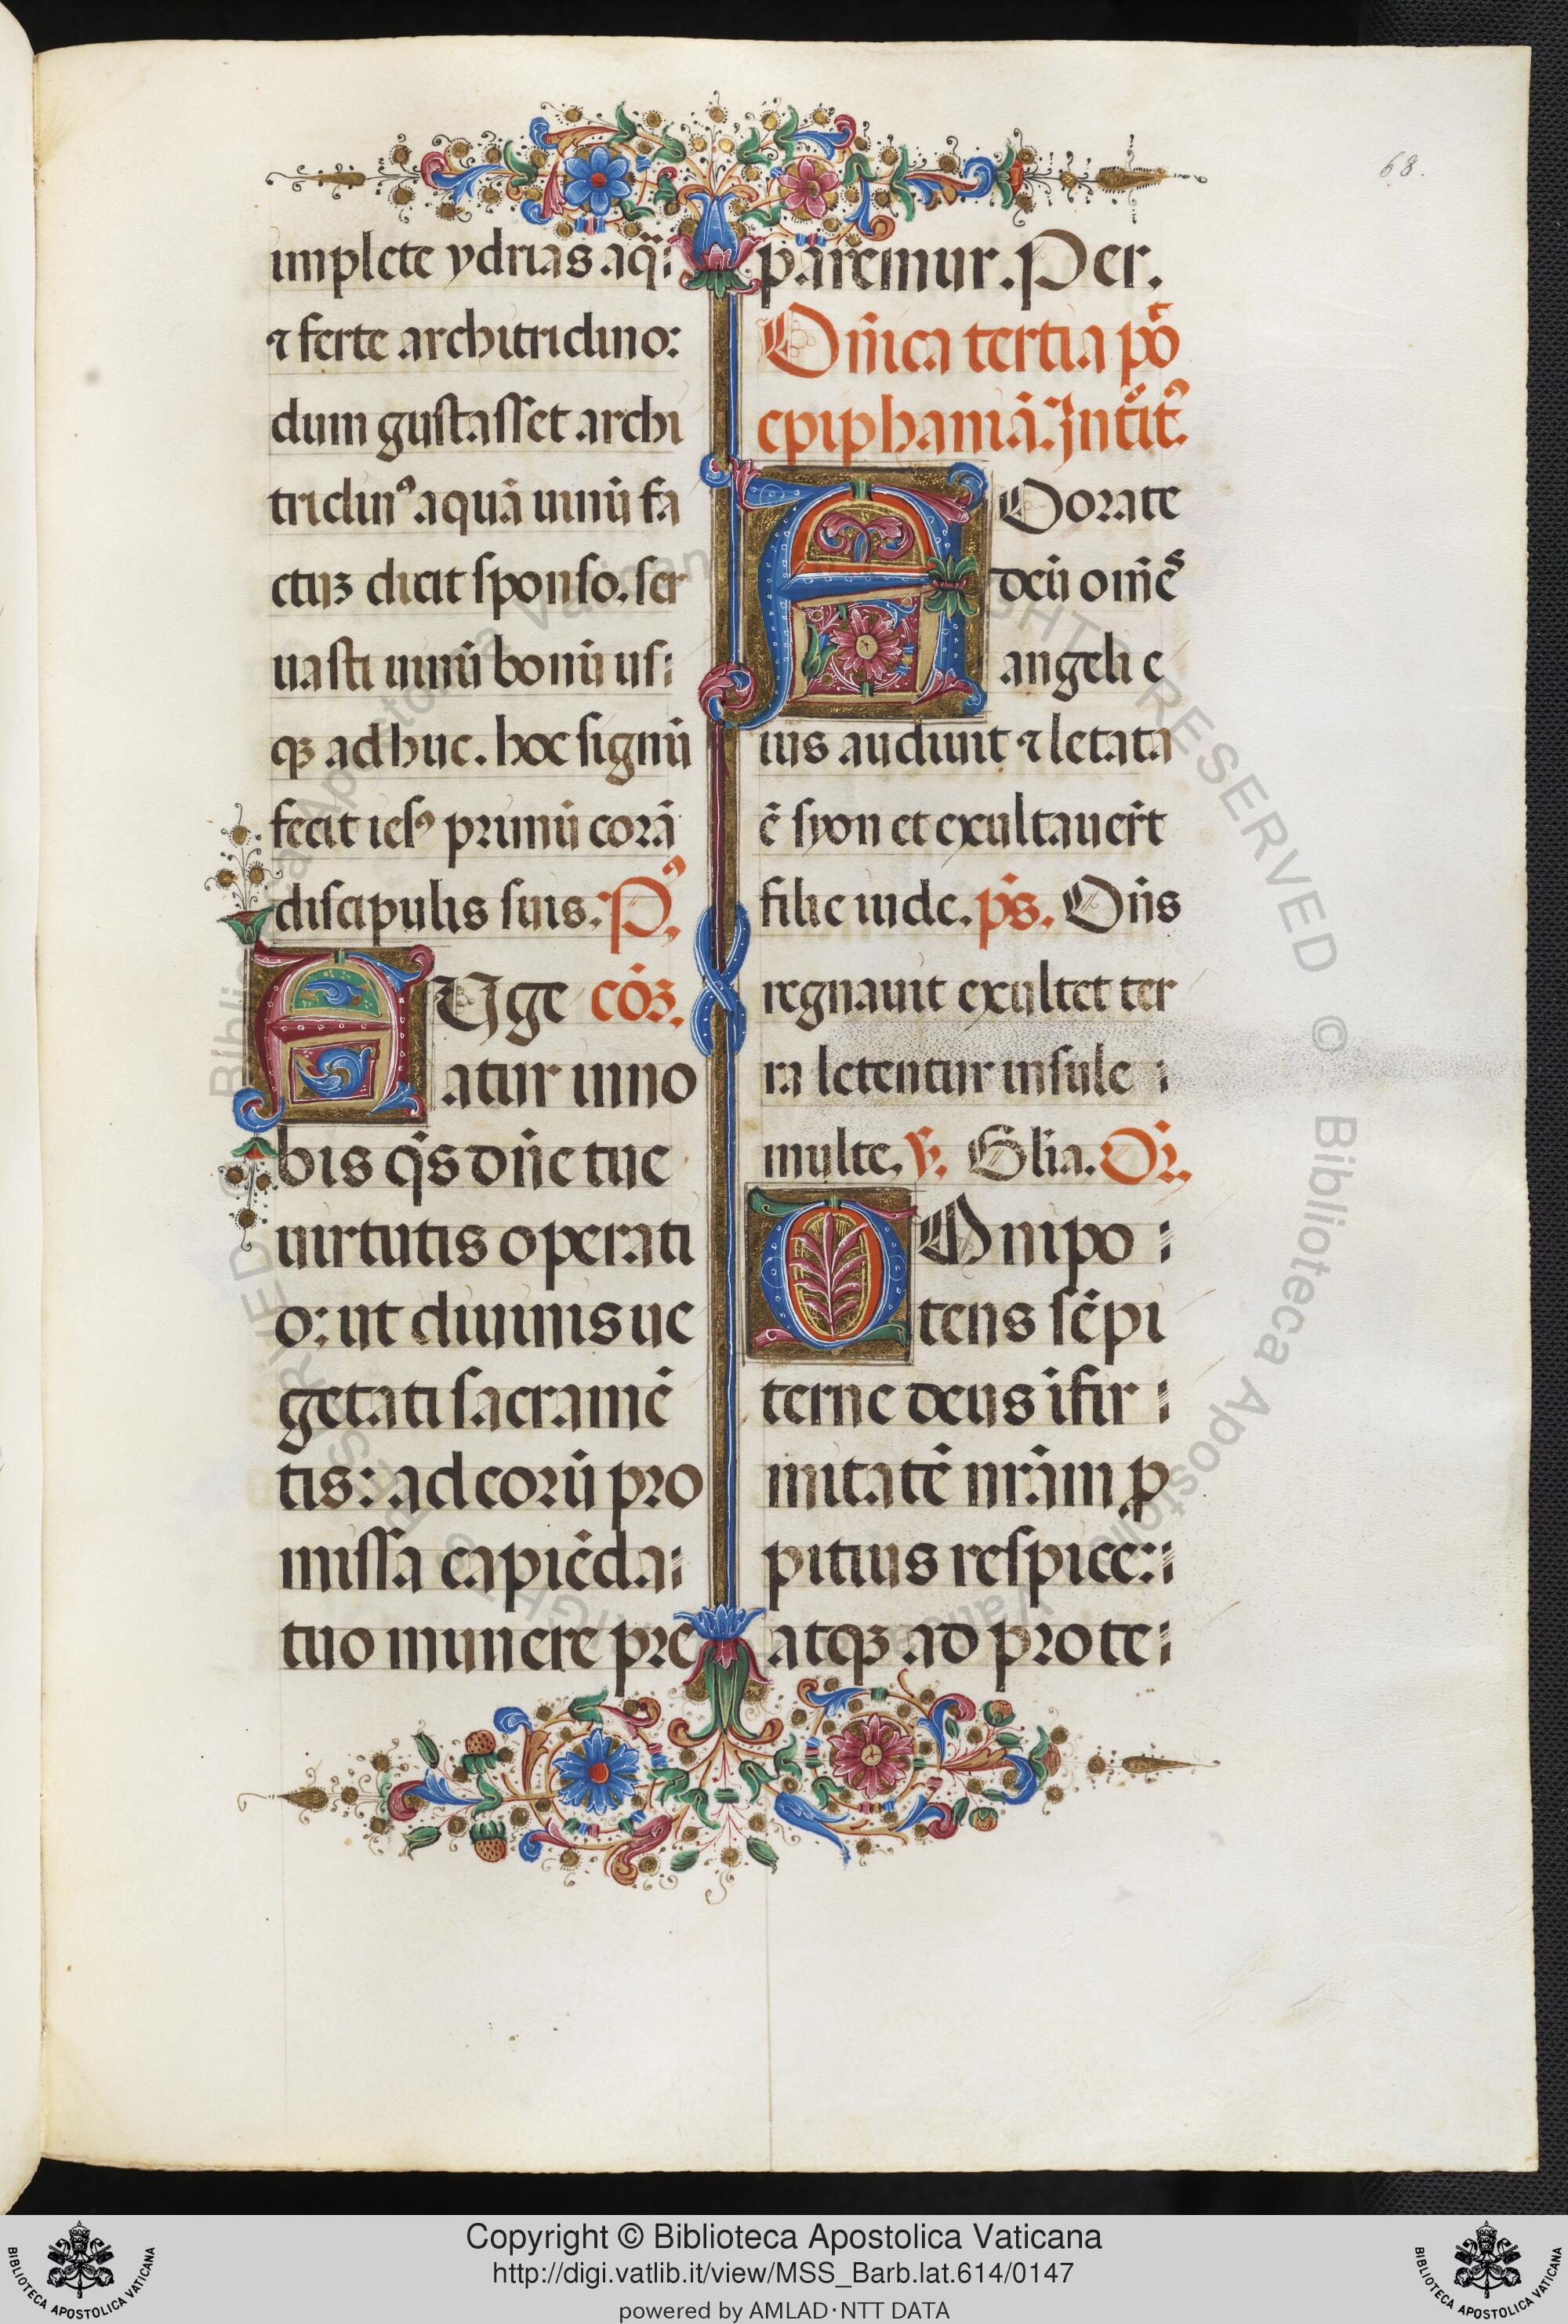 68.
implete ydrias aq̈i
⁊ ferte architriclino:
dum gustasset archi
triclinꝰ aquā uinū fa
ctuꝫ dicit sponso. ser
uasti uinū bonū usi
qꝫ adhuc. hoc signū
fecit iesꝰ primū corā
discipulis suis. Pꝰ.
AUge cōꝫ.
atur in no
bis q̄s dn̄e tue
uirtutis operati
o: ut diuinis ue
getati sacramē
tis: ad eorū pro
missa capiēdai
tuo munere pre
paremur. Per.
Dn̄ica tertia pꝰ̄
epiphaniā. Introit̄ꝰ.
ADorate
deū om̄s
angeli e
ius audiuit ⁊ letata
ē syon et exultauer̄t
filie iude. ps̄. Dn̄s
regnauit exultet ter
ra letentur insule i
multe. ℣. Gl̄ia. Or̄.
OMnipo i
tens sēpi
terne deus ifir i
mitatē nr̄am ꝓ
pitius respice: i
atqꝫ ad protei
Copyright © Biblioteca Apostolica Vaticana
http://digi.vatlib.it/view/MSS_Barb.lat.614/0147
powered by AMLAD·NTT DATA
BIBLIOTECA APOSTOLICA VATICANA
BIBLIOTECA APOSTOLICA VATICANA